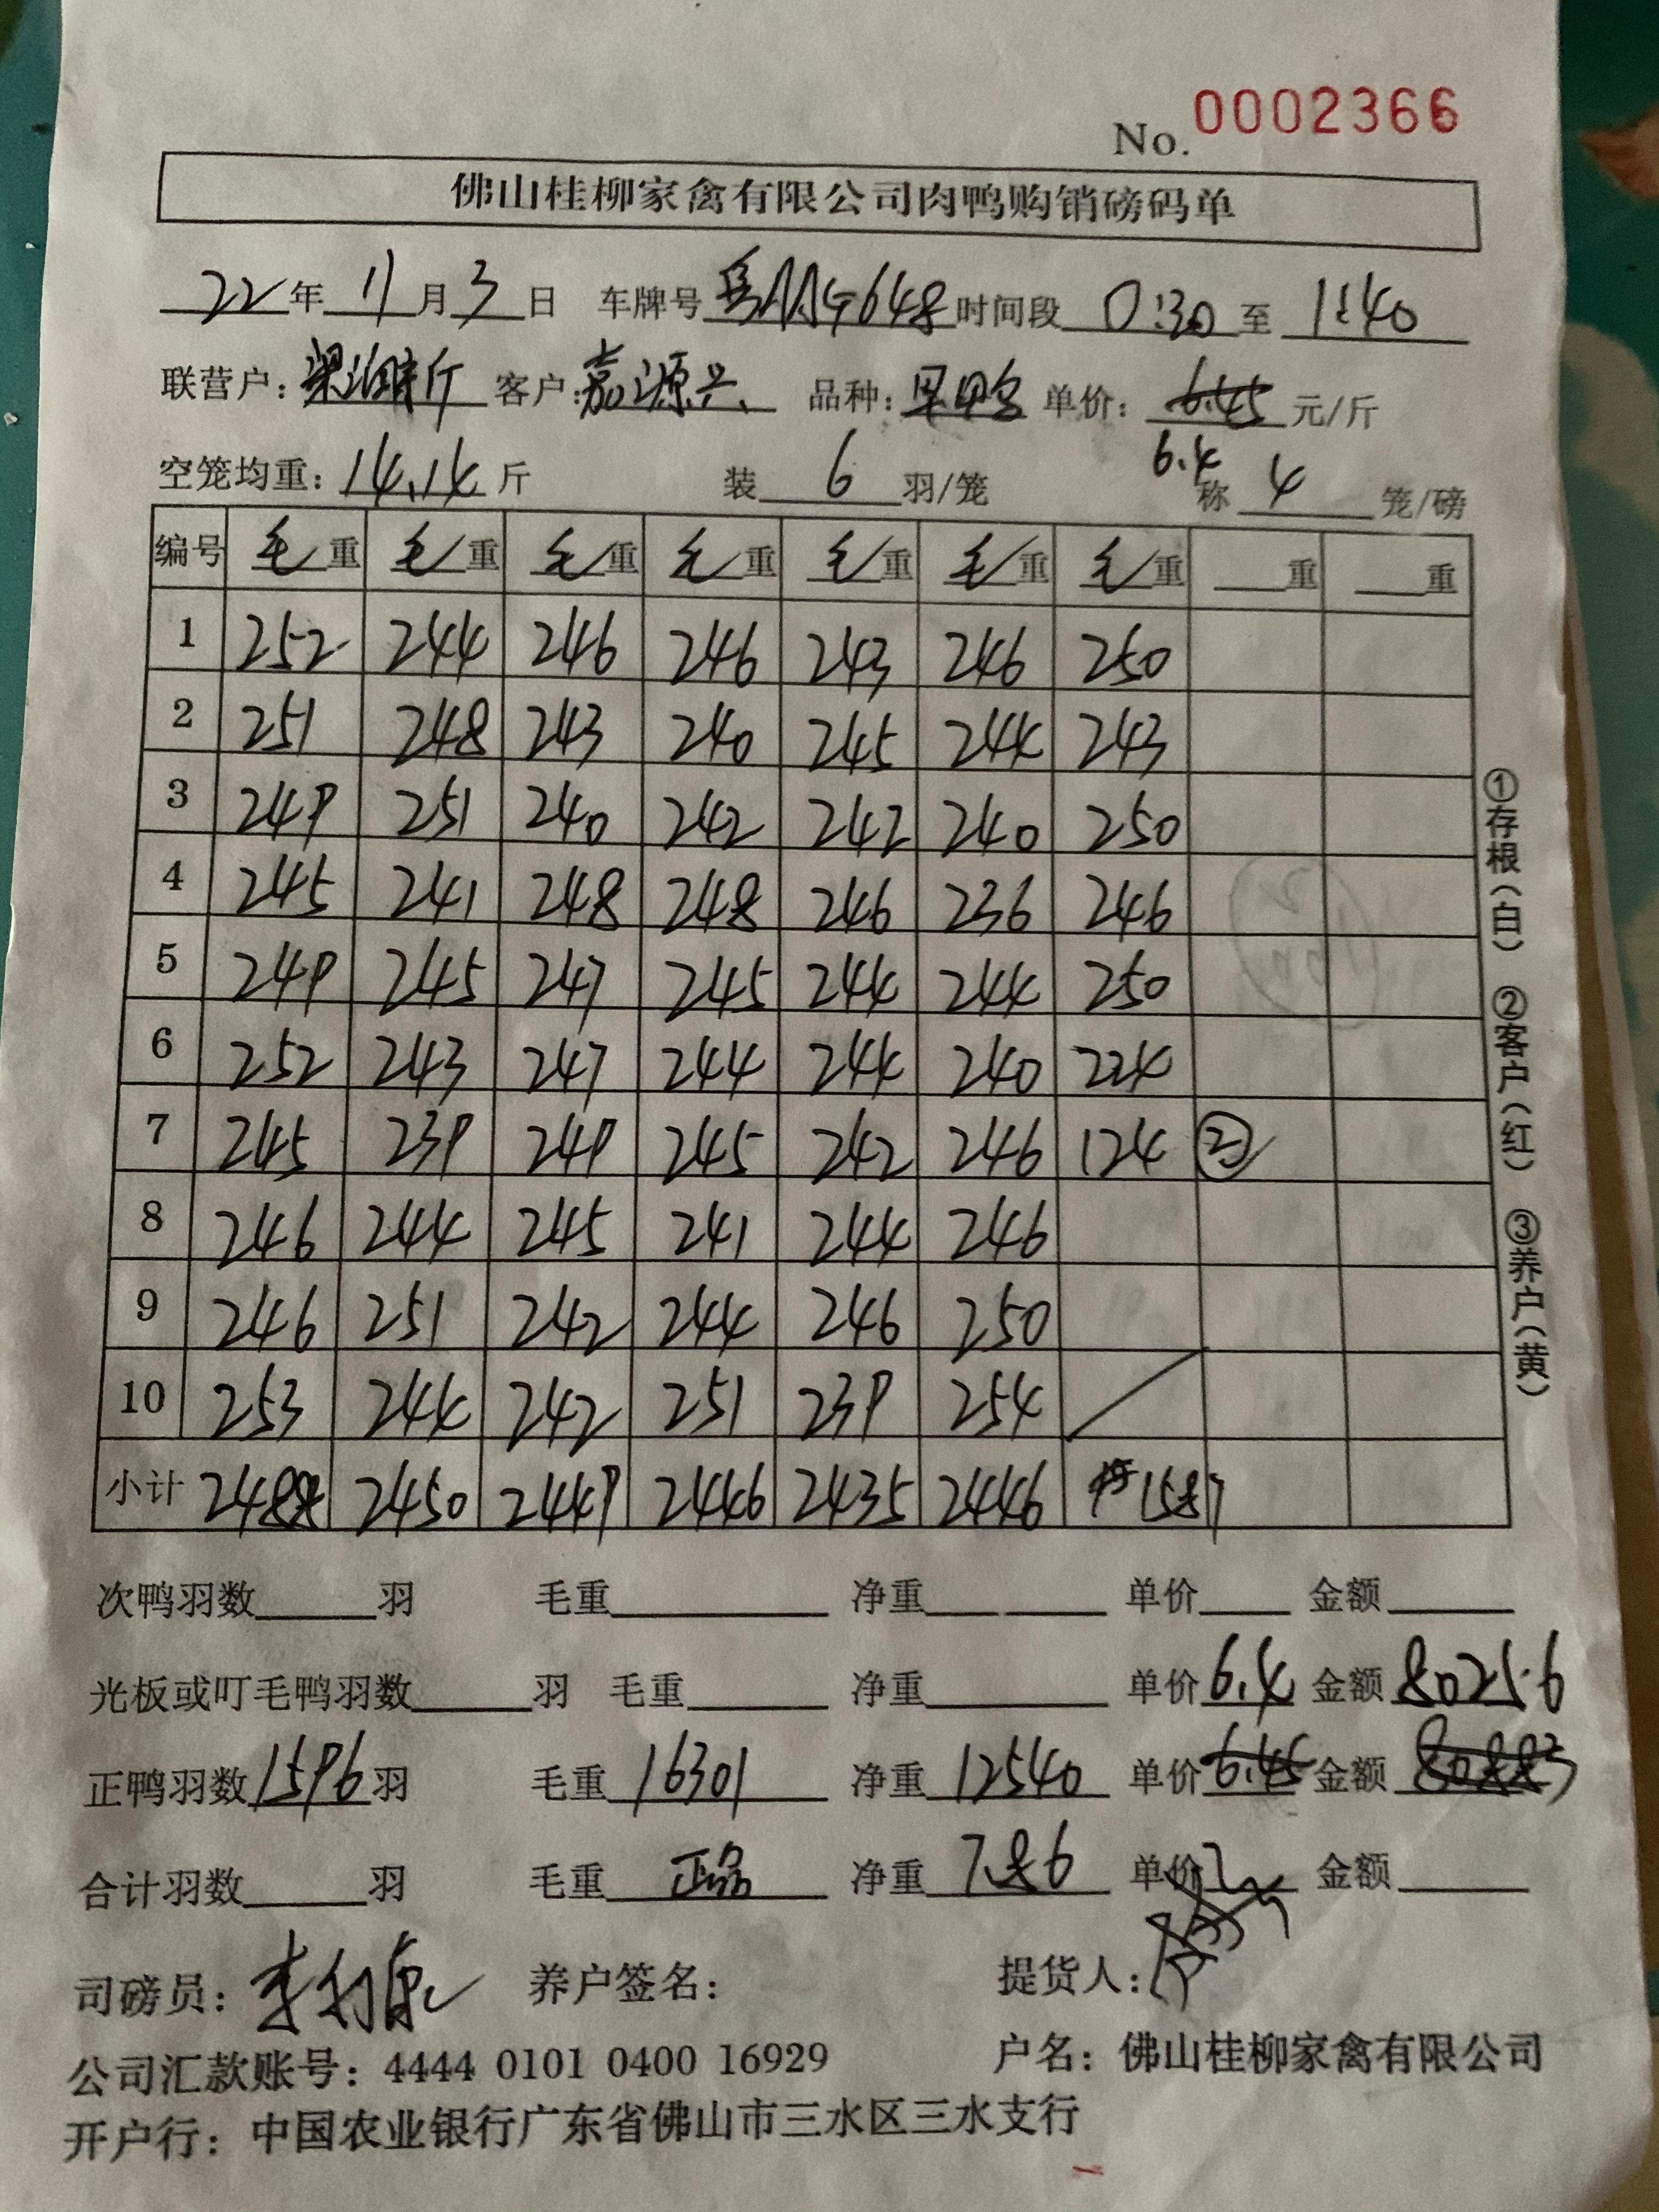 No. 0002366
佛山桂柳家禽有限公司肉鸭购销磅码单
22年11月3日 车牌号 4648 时间段 0:30 至 1:40
联营户: 客户: 嘉源兴 品种: 单价: 6.45 元/斤
6.4
空笼均重: 14.14 斤 装 6 羽/笼 称 4 笼/磅
编号 毛重 毛重 毛重 毛重 毛重 毛重 毛重 重 重
1 252 244 246 246 243 246 250
2 251 248 243 240 245 244 243
3 249 251 240 242 242 240 250
4 245 241 248 248 246 236 246
5 249 245 247 245 244 244 250
6 252 243 247 244 244 240 224
7 245 239 249 245 242 246 124 ②
8 246 244 245 241 244 246
9 246 251 242 244 246 250
10 253 244 242 251 239 254
小计 2488 2450 2449 2446 2435 2446 1587
次鸭羽数 羽 毛重 净重 单价 金额
光板或叮毛鸭羽数 羽 毛重 净重 单价 6.4 金额 80256
正鸭羽数 1596 羽 毛重 16301 净重 12540 单价 6.45 金额 80883
合计羽数 羽 毛重 正品 净重 7.86 单价 金额
司磅员: 养户签名: 提货人:
公司汇款账号: 4444 0101 0400 16929 户名: 佛山桂柳家禽有限公司
开户行: 中国农业银行广东省佛山市三水区三水支行
①存根(白) ②客户(红) ③养户(黄)